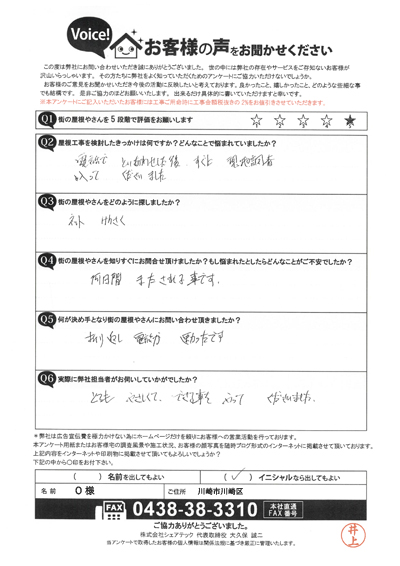 Voice!
お客様の声をお聞かせください
この度は弊社にお問い合わせいただき誠にありがとうございました。世の中には弊社の存在やサービスをご存知ないお客様が
沢山いらっしゃいます。その方たちに弊社をよく知っていただくためのアンケートにご協力いただけないでしょうか。
お客様のご意見をお聞かせいただき今後の活動に反映したいと考えております。良かったこと、嬉しかったこと、どのような些細な事
でも結構です。是非ご協力のほどお願いいたします。出来るだけ具体的に書いていただけますと幸いです。
※本アンケートにご記入いただいたお客様には工事ご用命時に工事金額税抜きの2%をお値引きさせていただきます。
Q1 街の屋根やさんを5段階で評価をお願いします ☆ ☆ ☆ ☆ ★
Q2 屋根工事を検討したきっかけは何ですか?どんなことで悩まれていましたか?
といあわせした後 すぐに
くださいました
Q3 街の屋根やさんをどのように探しましたか?
ネット けんさく
Q4 街の屋根やさんを知りすぐにお問合せ頂けましたか?もし悩まれたとしたらどんなことがご不安でしたか?
何日間 またされる事です。
Q5 何が決め手となり街の屋根やさんにお問い合わせ頂きましたか?
おり返し 電話が 早かったです
Q6 実際に弊社担当者がお伺いしていかがでしたか?
とても やさしくて、 やって くださいました。
＊弊社は広告宣伝費を極力かけない為にホームページだけを頼りにお客様への営業活動を行っております。
本アンケート用紙またはお客様宅の調査風景や施工状況、お客様の顔写真を随時ブログ形式のインターネットに掲載させて頂いております。
上記内容をインターネットや印刷物に掲載させて頂いてもよろしいでしょうか?
下記の中から〇印をお付下さい。
( ) 名前を出してもよい (✓) イニシャルなら出してもよい
名前 O様 ご住所 川崎市川崎区
FAX 0438-38-3310 本社直通 FAX番号
ご協力ありがとうございました。
株式会社シェアテック 代表取締役 大久保 誠二
当アンケートで取得したお客様の個人情報は関係法規に基づき厳正に管理いたします。
井上